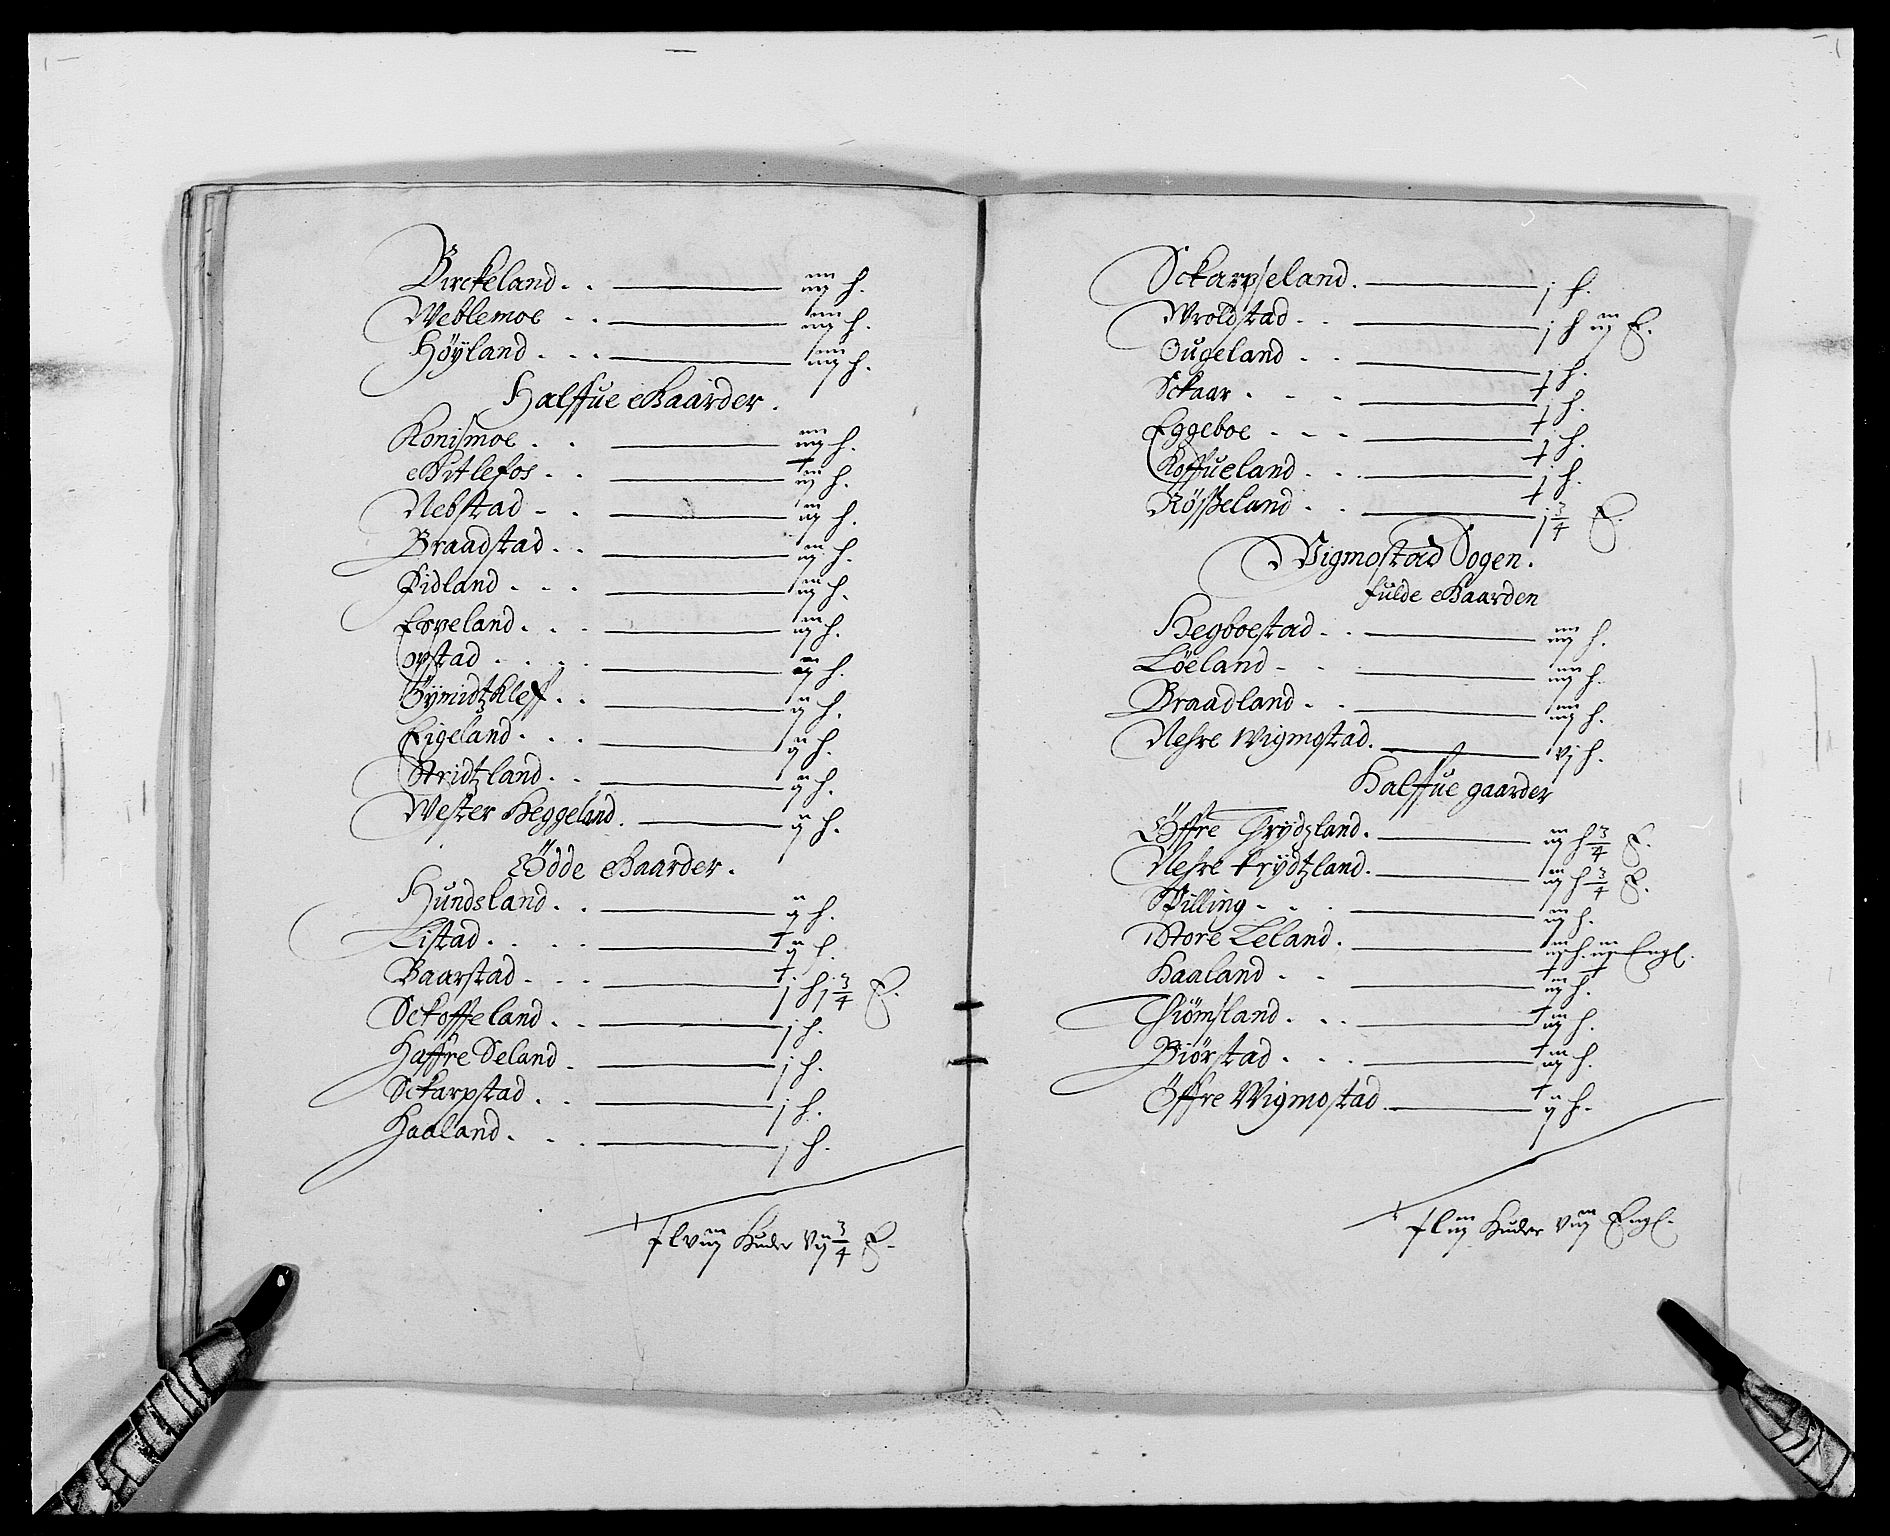 Birckeland. . iiij h.
Weblemoe . . iiij h.
Höyland. . . iiij h.
Halffue Gaarder.
Konismoe . . iiij h.
Gitlefos . . iij h.
Nebstad . . iij h.
Braadstad . . iij h.
Fidland . . . iij h.
Espeland . . . iij h.
Opstad . . . . h.
ij h.
Eigeland . . . ij h.
Stridtzland . . ij h.
Wester Heggeland. ij h.
Ödde Gaarder.
Hundsland . . ij h.
Listad . . . . ij h.
Baarstad . . . j h j 3/4 E.
Sckoffeland . . j h.
Haffre Seland . j h.
Sckarpstad . . j h.
Haaland . . . j h.
Huder 3/4 E.
Sckarpseland. j h.
Wroldstad . . j h iij E.
Ougeland . . j h.
Sckaar . . . j h.
Eggeboe . . . j h.
Koffueland . . j h.
Rösseland . . j 3/4 E.
Vigmostad Sogen.
fulde Gaarden
Hegboestad . . iiij h.
Löeland . . iiij h.
Braadland . . iiij h.
Nehre Wigmostad. vj h.
Halffue gaarder
Öffre Trydzland. iij h 3/4 E.
Nehre Trydtzland. iij h 3/4 E.
Spilling . . . iij h.
Store Leland. iij h. iij Engl.
Haaland . . iij h.
Thiömsland . . . iij h.
Biörstad . . . iij h.
Öffre Wigmostad. ij h.
Huder Engl.